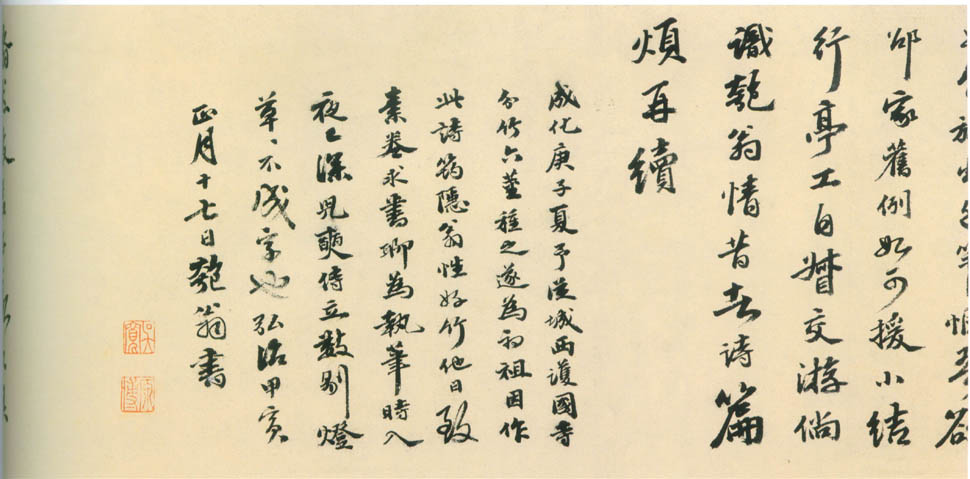 家舊例如可援小結
行亭工自督交游倘
識匏翁情詩篇
煩再續
成化庚子夏予從城西護國寺
分竹六莖種之遂為初祖因作
此詩筠隱翁性好竹他日致
素卷求書聊為執筆時入
夜已深兒奭侍立數剔燈
草〻不成字也弘治甲寅
正月十七日匏翁書
吳寬
原博